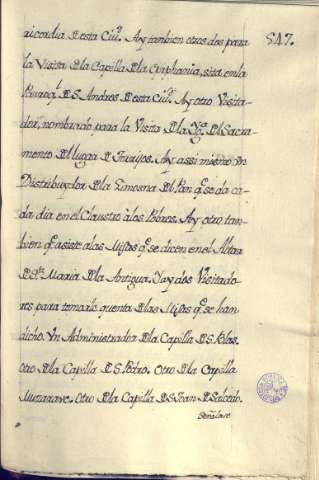 547.
ricordia D esta Ciu.d Ay tambien otros dos para
la Visita D la Capilla D la Epiphania, sita en la
Parroq.l D S. Andres D esta Ciu.d Ay otro Visita-
dor, nombrado para la Visita D la Yg.a D el Sacra-
mento D el lugar D Torrijos. Ay assi mismo Vn
Distribuydor D la limosna D el Pan q.e se da ca-
da dia en el Claustro à los Pobres. Ay otro tam-
bien q.e asiste alas Missas q.e se dicen en el Altar
D S.ta Maria D la Antigua. Y ay dos Visitado-
res para tomarlo quenta D las Missas q.e se han
dicho. Vn Administrador D la Capilla D S. Blas.
Otro D la Capilla D S. Pedro. Otro D la Capilla
Muzarave. Otro D la Capilla D S. Joan D Salcedo.
Señalase